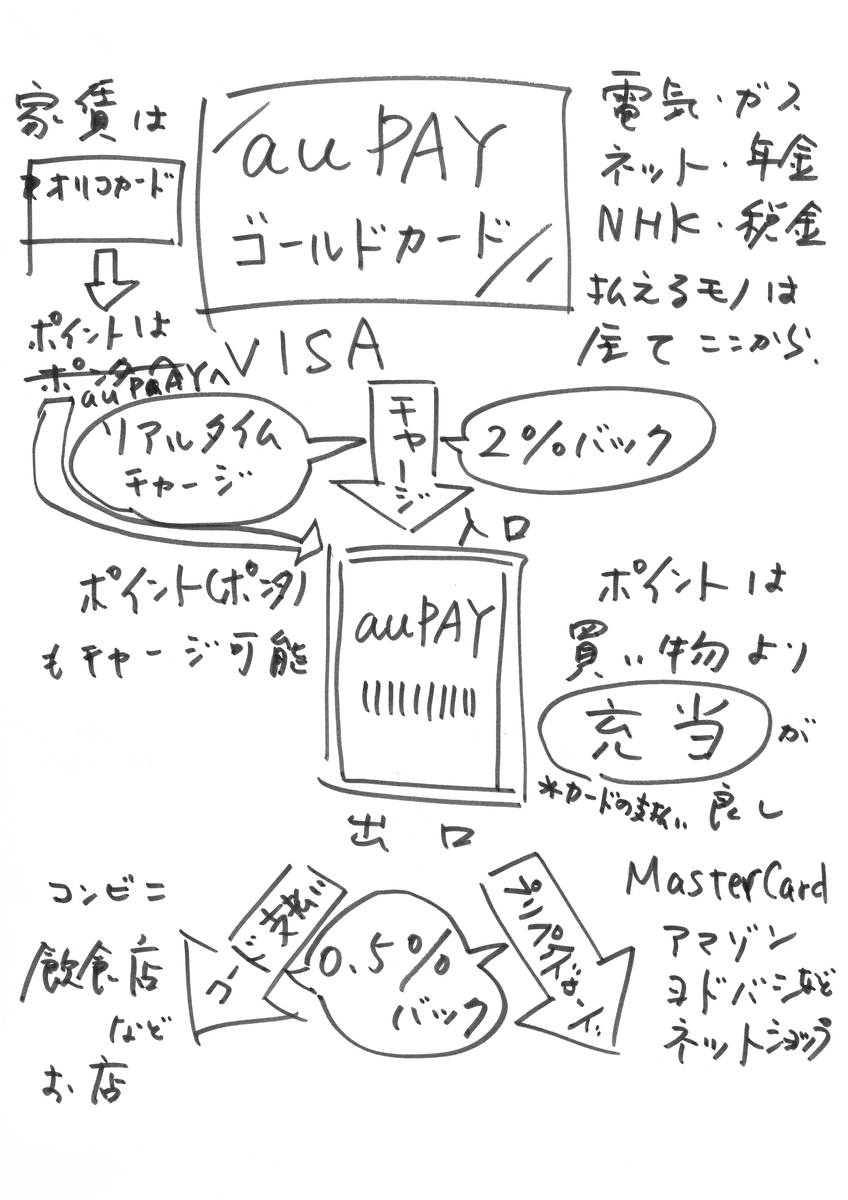 家賃は
オリコカード
ポイントは
au PAYへ
au PAY
ゴールドカード
VISA
電気・ガス
ネット・年金
NHK・税金
払えるモノは
全てここから.
リアルタイム
チャージ
チャージ
2%バック
入口
ポイント(ポンタ)
もチャージ可能
au PAY
ポイントは
買い物より
充当が
*カードの支払い 良し
出口
コンビニ
飲食店
など
お店
コード支払い
0.5%
バック
プリペイドカード
MasterCard
アマゾン
ヨドバシなど
ネットショップ